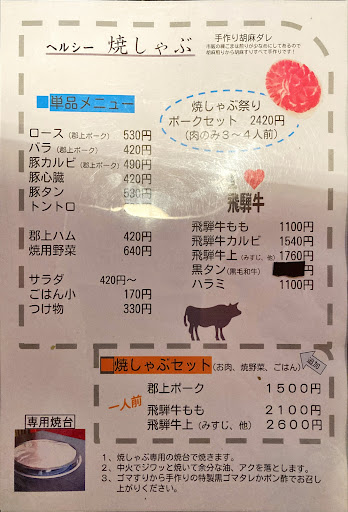 ヘルシー 焼しゃぶ
手作り胡麻ダレ
単品メニュー
ロース（郡上ポーク） 530円
バラ（郡上ポーク） 420円
豚カルビ（郡上ポーク） 490円
豚心臓 420円
豚タン 530円
トントロ
郡上ハム 420円
焼用野菜 640円
サラダ 420円～
ごはん小 170円
つけ物 330円
焼しゃぶ祭り
ポークセット 2420円
（肉のみ３～４人前）
飛騨牛
飛騨牛もも 1100円
飛騨牛カルビ 1540円
飛騨牛上（みすじ、他） 1760円
黒タン（黒毛和牛） 円
ハラミ 1100円
焼しゃぶセット（お肉、焼野菜、ごはん）
追加
一人前
郡上ポーク 1500円
飛騨牛もも 2100円
飛騨牛上（みすじ、他） 2600円
専用焼台
１、焼しゃぶ専用の焼台で焼きます。
２、中火でジワッと焼いて余分な油、アクを落とします。
３、ゴマすりから手作りの特製黒ゴマタレかポン酢でお召し
上がりください。